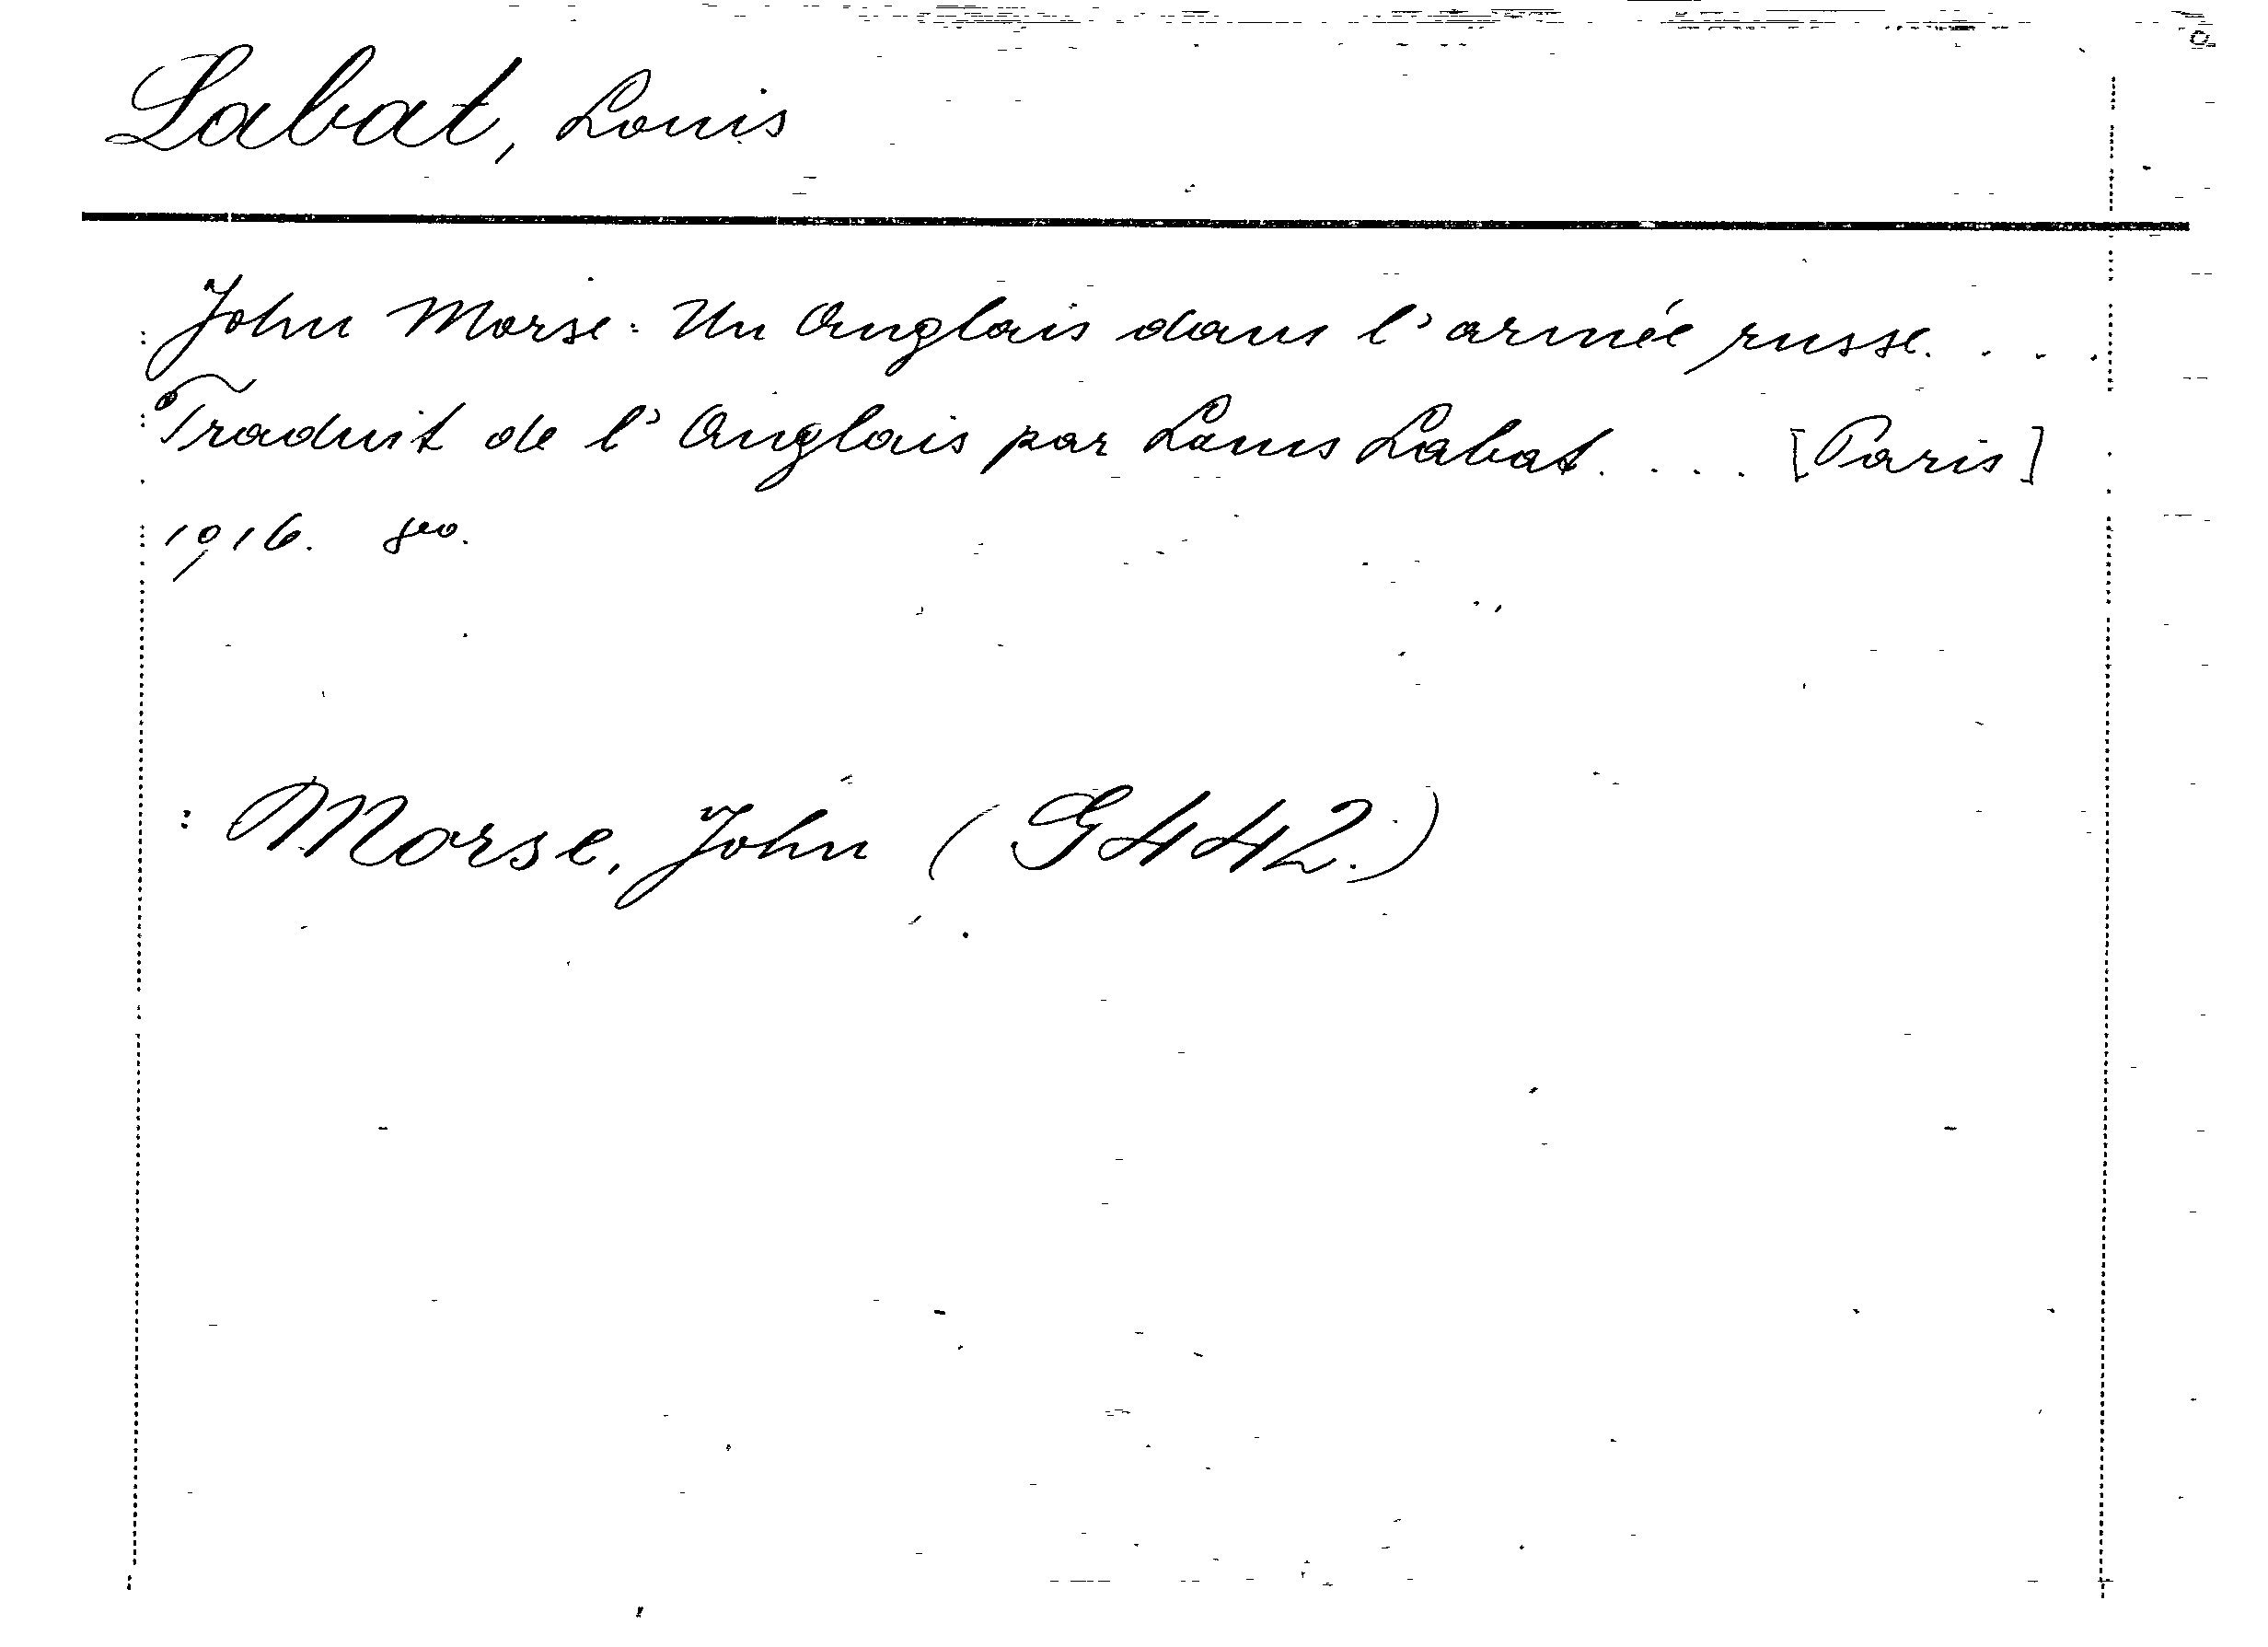 Labat, Louis
John Morse: Un Anglais dans l'armée russe. . . .
Traduit de l'Anglais par Louis Labat. . . . [Paris]
1916. 8vo.
Morse, John (G442.)